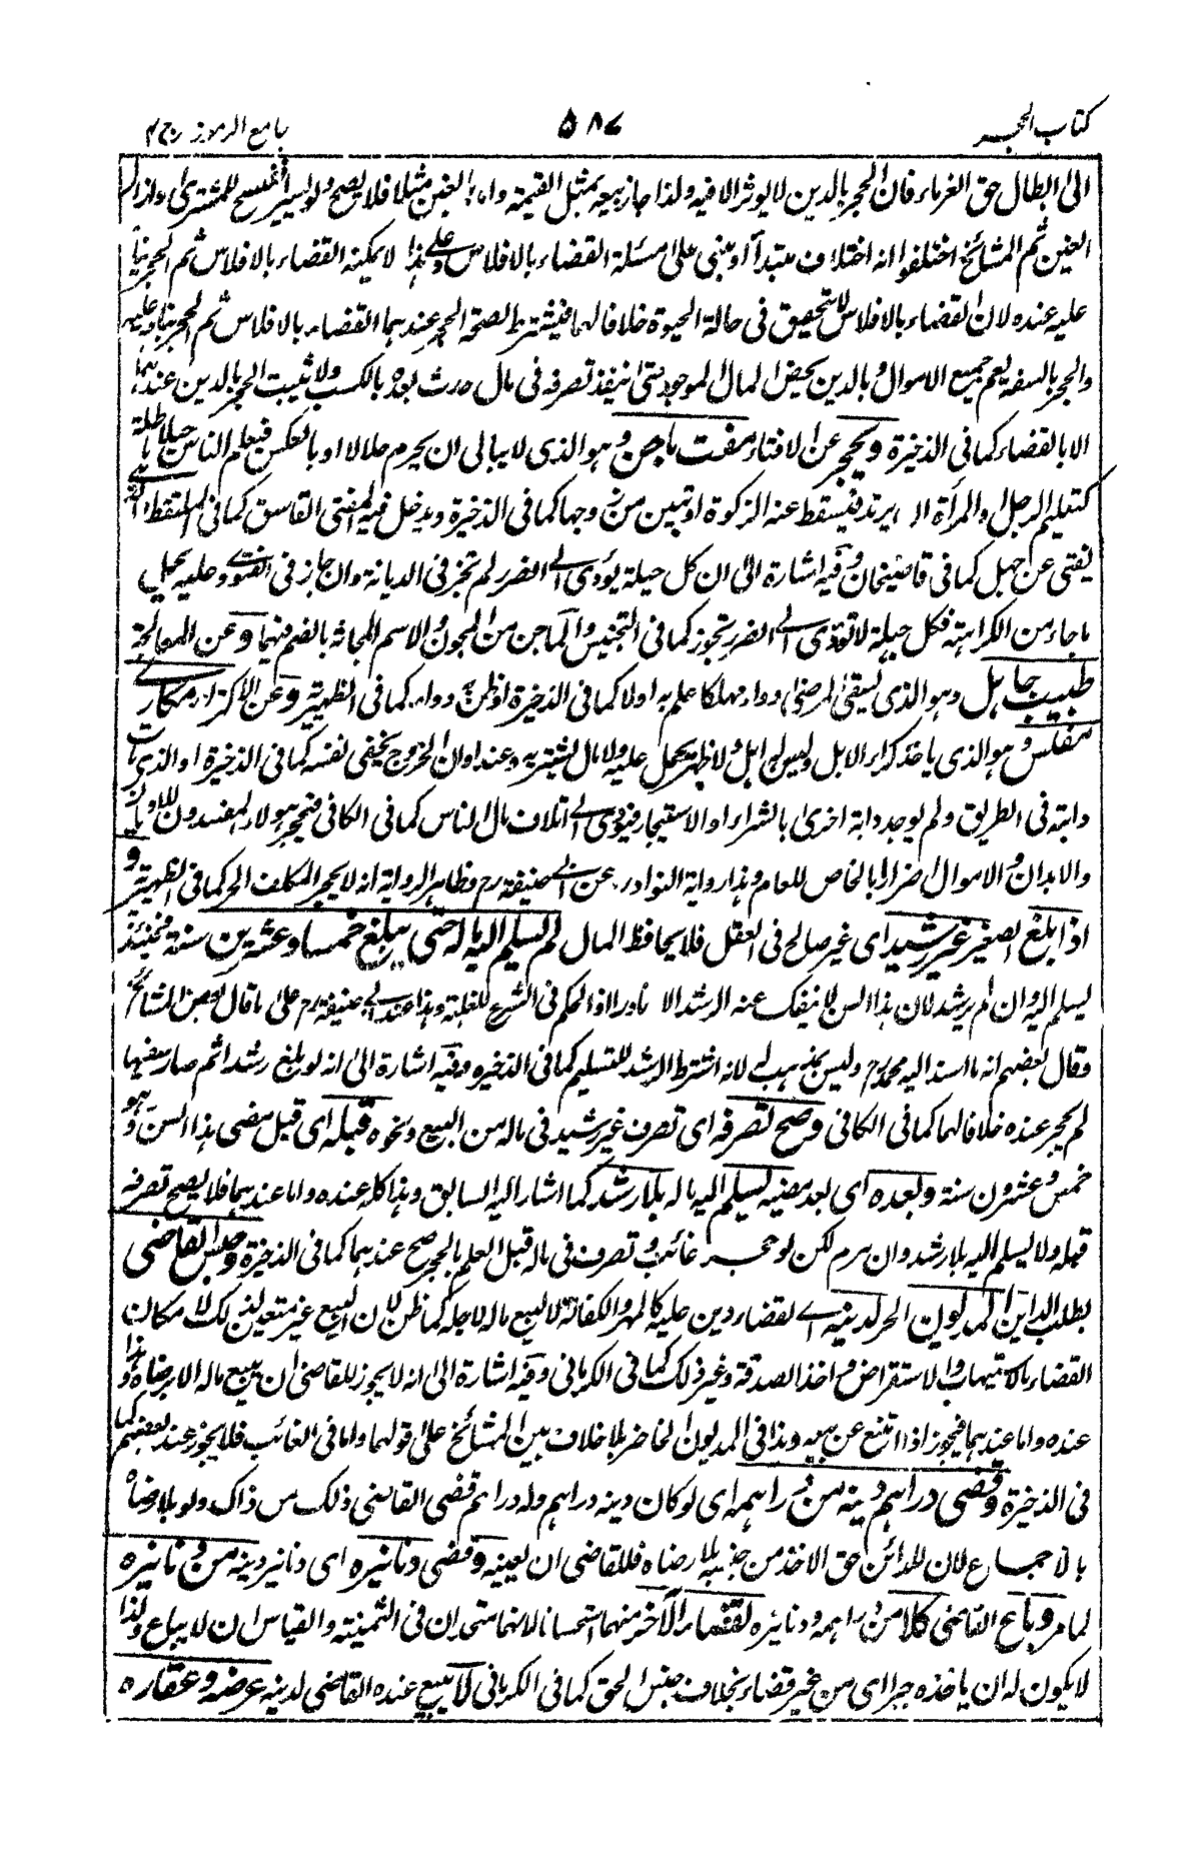 كتاب الحجر ٥٨٧ جامع الرموز ج ٢
الى ابطال حق الغرماء فان الحجر بالدين لا يوثر الا فيه ولذا جاز بيعه بمثل القيمة واما بالغبن مثلا فلا يصح ولو يسير الفسخ للمشترى او ازالة
الغبن ثم المشائخ اختلفوا انه اختلاف مبتدأ او مبنى على مسئلة القضاء بالافلاس وعلى هذا لا يمكنه القضاء بالافلاس ثم الحجر بناء
عليه عنده لان القضاء بالافلاس لا يتحقق فى حالة الحيوة خلافا لهما فيشترط لصحة الحجر عندهما القضاء بالافلاس ثم الحجر بناء عليه
والحجر بالسفه يعم جميع الاموال وبالدين يخص المال الموجود حتى ينفذ تصرفه فى مال حدث بعده بالكسب ولا يثبت الحجر بالدين عندهما
الا بالقضاء كما فى الذخيرة ويحجر عن الافتاء مفت ماجن وهو الذى لا يبالى ان يحرم حلالا او بالعكس فيعلم الناس حيلا باطلة
كتعليم الرجل والمرأة ان يرتد فيسقط عنه الزكوة او تبين من زوجها كما فى الذخيرة ويدخل فيه المفتى الفاسق كما فى الملتقط والذى
يفتى عن جهل كما فى قاضيخان وفيه اشارة الى ان كل حيلة يؤدى الى الضرر لم تجز فى الديانة وان جاز فى الفتوى وعليه يحمل
ما جاء من الكراهة فكل حيلة لا تؤدى الى الضرر تجوز كما فى التجنيس والماجن من المجون والاسم المجانة بالضم فيهما وعن المعالجة
طبيب جاهل وهو الذى يسقى المرضى دواء مهلكا علم به او لا كما فى الذخيرة او ظنه دواء كما فى الظهيرية وعن الاكتراء مكارى
مفلس وهو الذى ياخذ كراء الابل وليس له ابل ولا ظهر يحمل عليه ولا مال يشتريه وعند اوان الخروج يخفى نفسه كما فى الذخيرة او الذى مات
دابته فى الطريق ولم يوجد دابة اخرى بالشراء او الاستيجار فيؤدى الى اتلاف مال الناس كما فى الكافى فتحجر هولاء المفسدون للاديان
والابدان والاموال اضرارا بالخاص للعام وهذا رواية النوادر عن ابى حنيفة رح وظاهر الرواية انه لا يحجر المكلف الحر كما فى الظهيرية و
اذا بلغ الصغير غير رشيد اى غير صالح فى العقل فلا يحافظ المال لم يسلم اليه ماله حتى يبلغ خمسا وعشرين سنة فحينئذ
يسلم اليه وان لم يرشد لان هذا السن لا ينفك عنه الرشد الا نادرا اذ الحكم فى الشرع للغلبة وهذا عند ابى حنيفة رح على ما قال بعض المشائخ
وقال بعضهم انه ما اسند اليه محمد رح وليس بمذهب له لانه اشترط الرشد للتسليم كما فى الذخيره وفيه اشارة الى انه لو بلغ رشيدا ثم صار سفيها
لم يحجر عنده خلافا لهما كما فى الكافى وصح تصرفه اى تصرف غير رشيد فى ماله من البيع ونحوه قبله اى قبل مضى هذا السن وهو
خمس وعشرون سنة وبعده اى بعد مضيه يسلم اليه ماله بلا رشد كما اشار اليه السابق وهذا كله عنده واما عندهما فلا يصح تصرفه
قبله ولا يسلم اليه بلا رشد وان هرم لكن لو حجر غائب وتصرف فى ماله قبل العلم بالحجر صح عندهما كما فى الذخيرة وحبس القاضى
بطلب الداين المديون الحر لدينه اى لقضاء دين عليه كالمهر والكفالة لا لبيع ماله لاجله كما ظن لان البيع غير متعين لذلك لامكان
القضاء بالاتيهاب والاستقراض واخذ الصدقة وغير ذلك كما فى الكرمانى وفيه اشارة الى انه لا يجوز للقاضى ان يبيع ماله الا برضاه وهذا
عنده واما عندهما فيجوز اذا امتنع عن بيعه وهذا فى المديون الحاضر بلا خلاف بين المشائخ على قولهما واما فى الغائب فلا يجوز عند بعضهم كما
فى الذخيرة وقضى دراهم دينه من دراهمه اى لو كان دينه دراهم وله دراهم قضى القاضى ذلك من ذاك ولو بلا رضاه
بالاجماع لان للدائن حق الاخذ من جنسه بلا رضاه فللقاضى ان يعينه وقضى دنانيره اى دنانير دينه من دنانيره
لما مر وباع القاضى كلا من دراهمه ودنانيره لقضاء الآخر منهما استحسانا لانهما متحدان فى الثمنية والقياس ان لا يباع ولذا
لا يكون له ان ياخذه جبرا اى من غير قضاء بخلاف جنس الحق كما فى الكرمانى لا يبيع عنده القاضى لدينه عرضه وعقاره